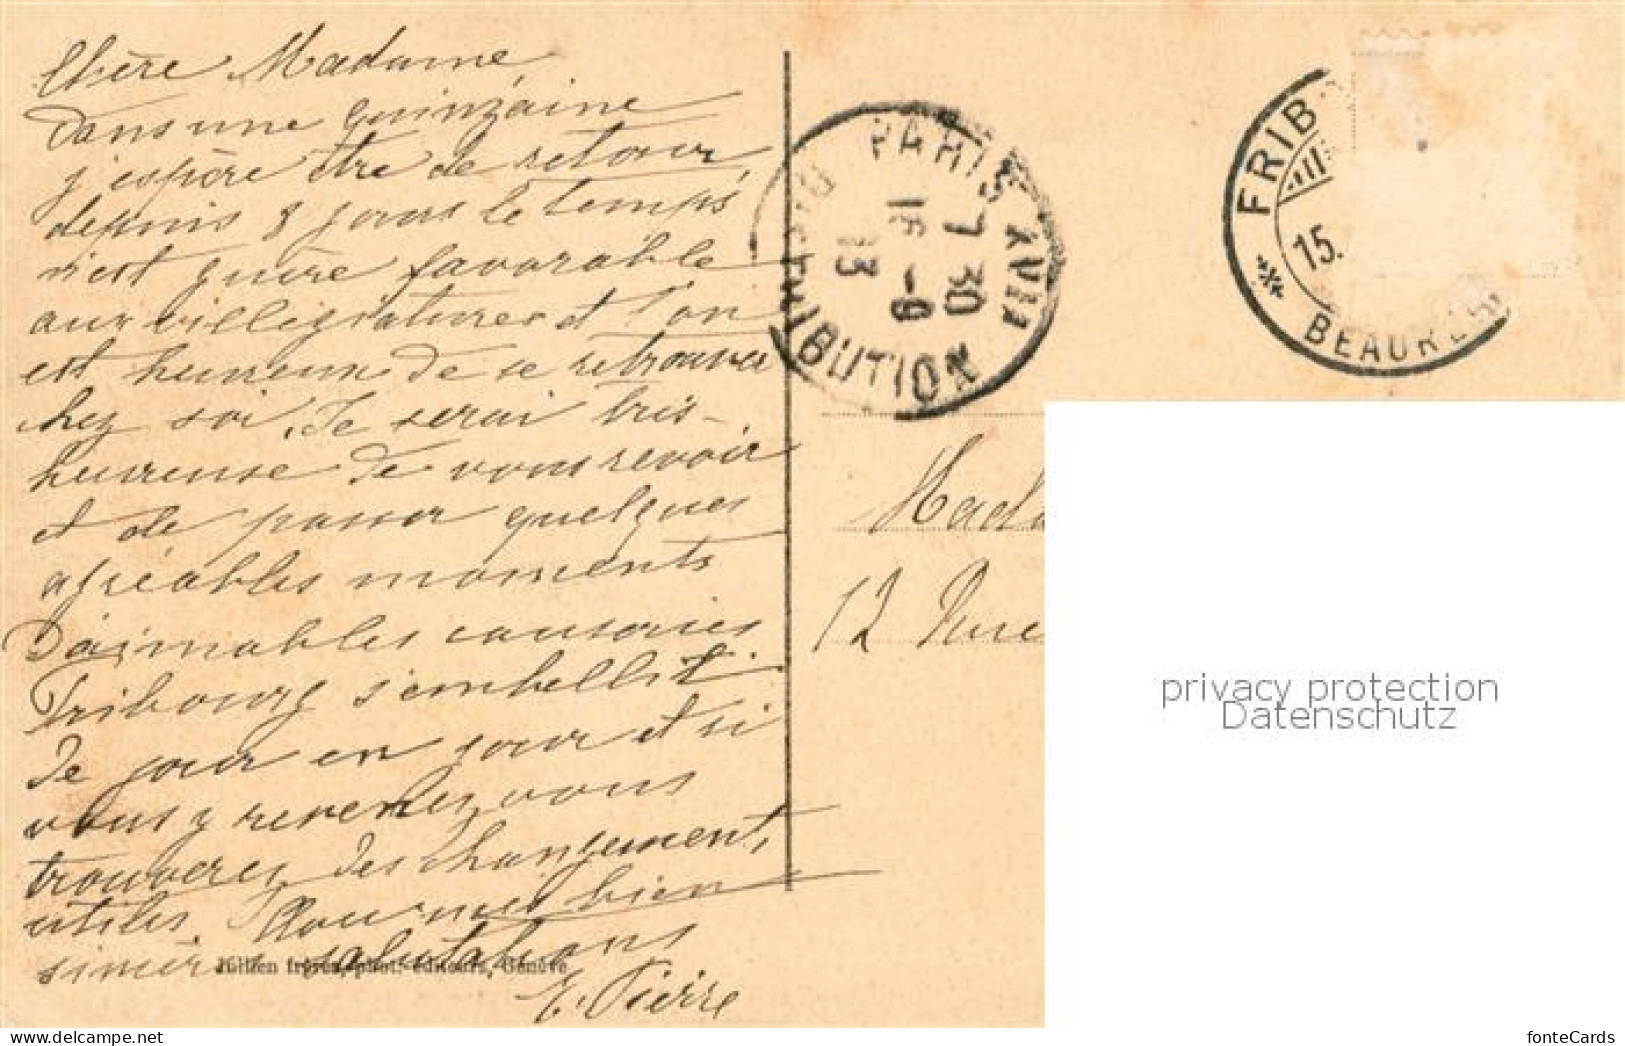 Chère Madame
Dans une quinzaine
j'espère être de retour
depuis 8 jours le temps
n'est guère favorable
aux villégiatures et l'on
est heureux de se retrouver
chez soi. Je serai très-
heureuse de vous revoir
et de passer quelques
agréables moments
D'aimables causeries.
Fribourg s'embellit
De jour en jour et si
vous y revenez vous
trouverez des changements
utiles. Pour
bien
sincères salutations
E. Pierre
Jullien frères, phot. éditeurs, Genève
PARIS XVIII
DISTRIBUTION
16 - 9
13
7 30
FRIB
15.
BEAUR
Mada
12 Rue
privacy protection
Datenschutz
fonteCards